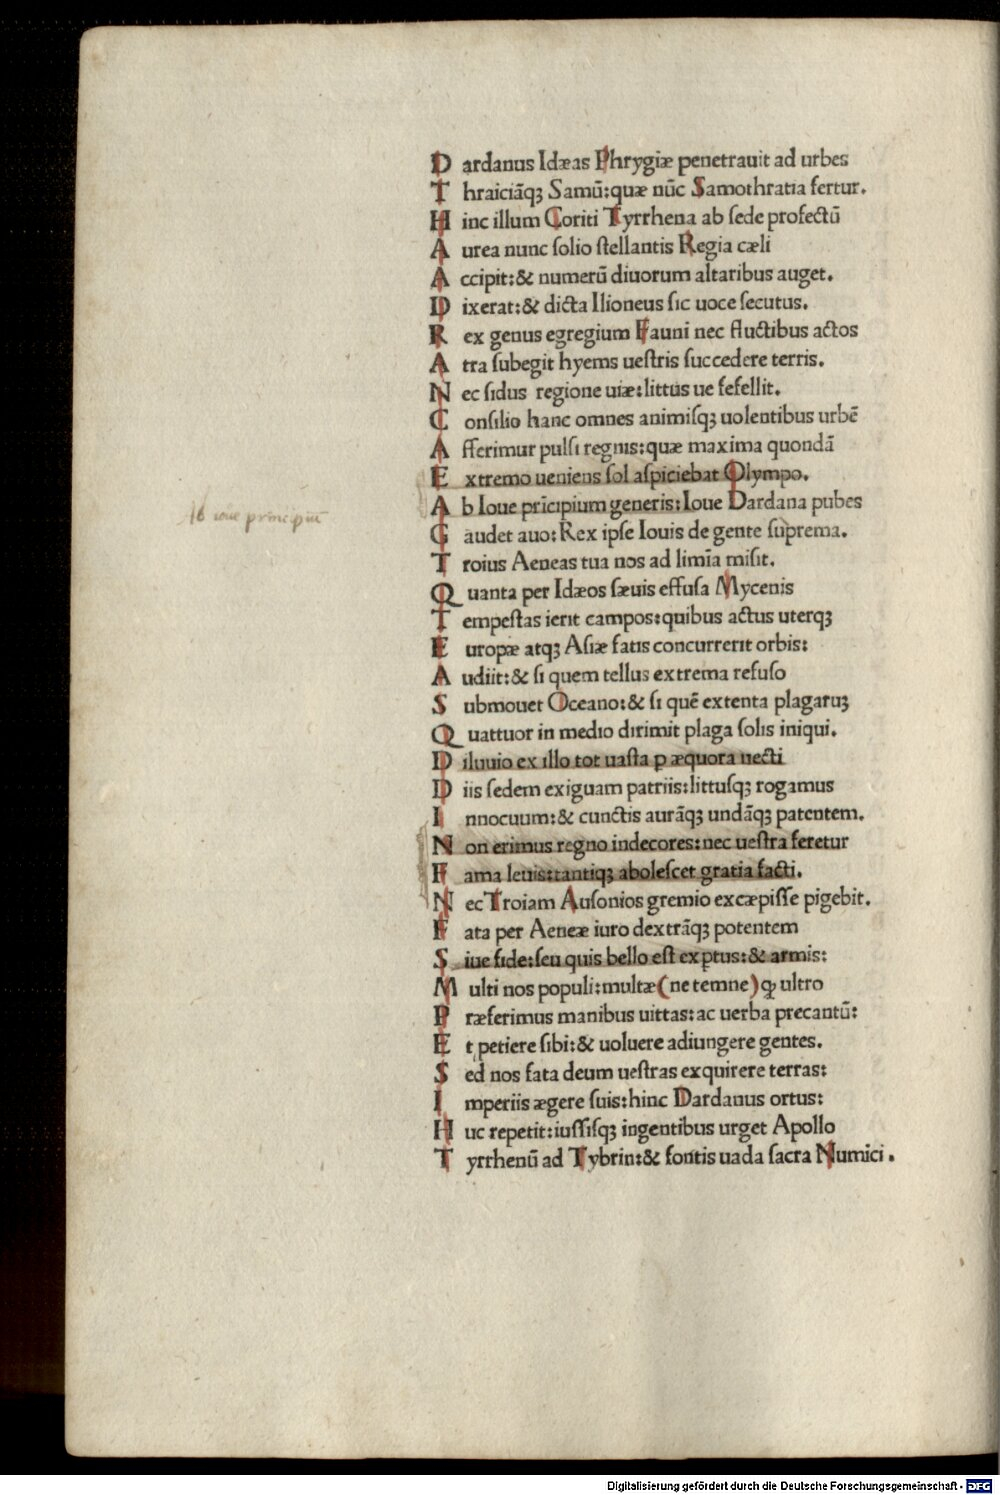 Dardanus Idæas Phrygiæ penetrauit ad urbes
Thraiciãqꝫ Samũ:quæ nũc Samothratia fertur.
Hinc illum Coriti Tyrrhena ab sede profectũ
Aurea nunc solio stellantis Regia cæli
Accipit:& numerũ diuorum altaribus auget.
Dixerat:& dicta Ilioneus sic uoce secutus.
Rex genus egregium Fauni nec fluctibus actos
Atra subegit hyems uestris succedere terris.
Nec sidus regione uiæ:littus ue fefellit.
Consilio hanc omnes animisqꝫ uolentibus urbẽ
Afferimur pulsi regnis:quæ maxima quondã
Extremo ueniens sol aspiciebat Olympo.
Ab Ioue prĩcipium generis:Ioue Dardana pubes
Ab ioue principiũ
Gaudet auo:Rex ipse Iouis de gente suprema.
Troius Aeneas tua nos ad limĩa misit.
Quanta per Idæos sæuis effusa Mycenis
Tempestas ierit campos:quibus actus uterqꝫ
Europæ atqꝫ Asiæ fatis concurrerit orbis:
Audiit:& si quem tellus extrema refuso
Submouet Oceano:& si quẽ extenta plagaruꝫ
Quattuor in medio dirimit plaga solis iniqui.
Diluuio ex illo tot uasta p æquora uecti
Diis sedem exiguam patriis:littusqꝫ rogamus
Innocuum:& cunctis aurãqꝫ undãqꝫ patentem.
Non erimus regno indecores:nec uestra feretur
Fama leuis:tantiqꝫ abolescet gratia facti.
Nec Troiam Ausonios gremio excæpisse pigebit.
Fata per Aeneæ iuro dextrãqꝫ potentem
Siue fide:seu quis bello est exptus:& armis:
Multi nos populi:multæ(ne temne)qꝫ ultro
Præferimus manibus uittas:ac uerba precantũ:
Et petiere sibi:& uoluere adiungere gentes.
Sed nos fata deum uestras exquirere terras:
Imperiis ægere suis:hinc Dardanus ortus:
Huc repetit:iussisqꝫ ingentibus urget Apollo
Tyrrhenũ ad Tybrin:& fontis uada sacra Numici.
Digitalisierung gefördert durch die Deutsche Forschungsgemeinschaft - DFG